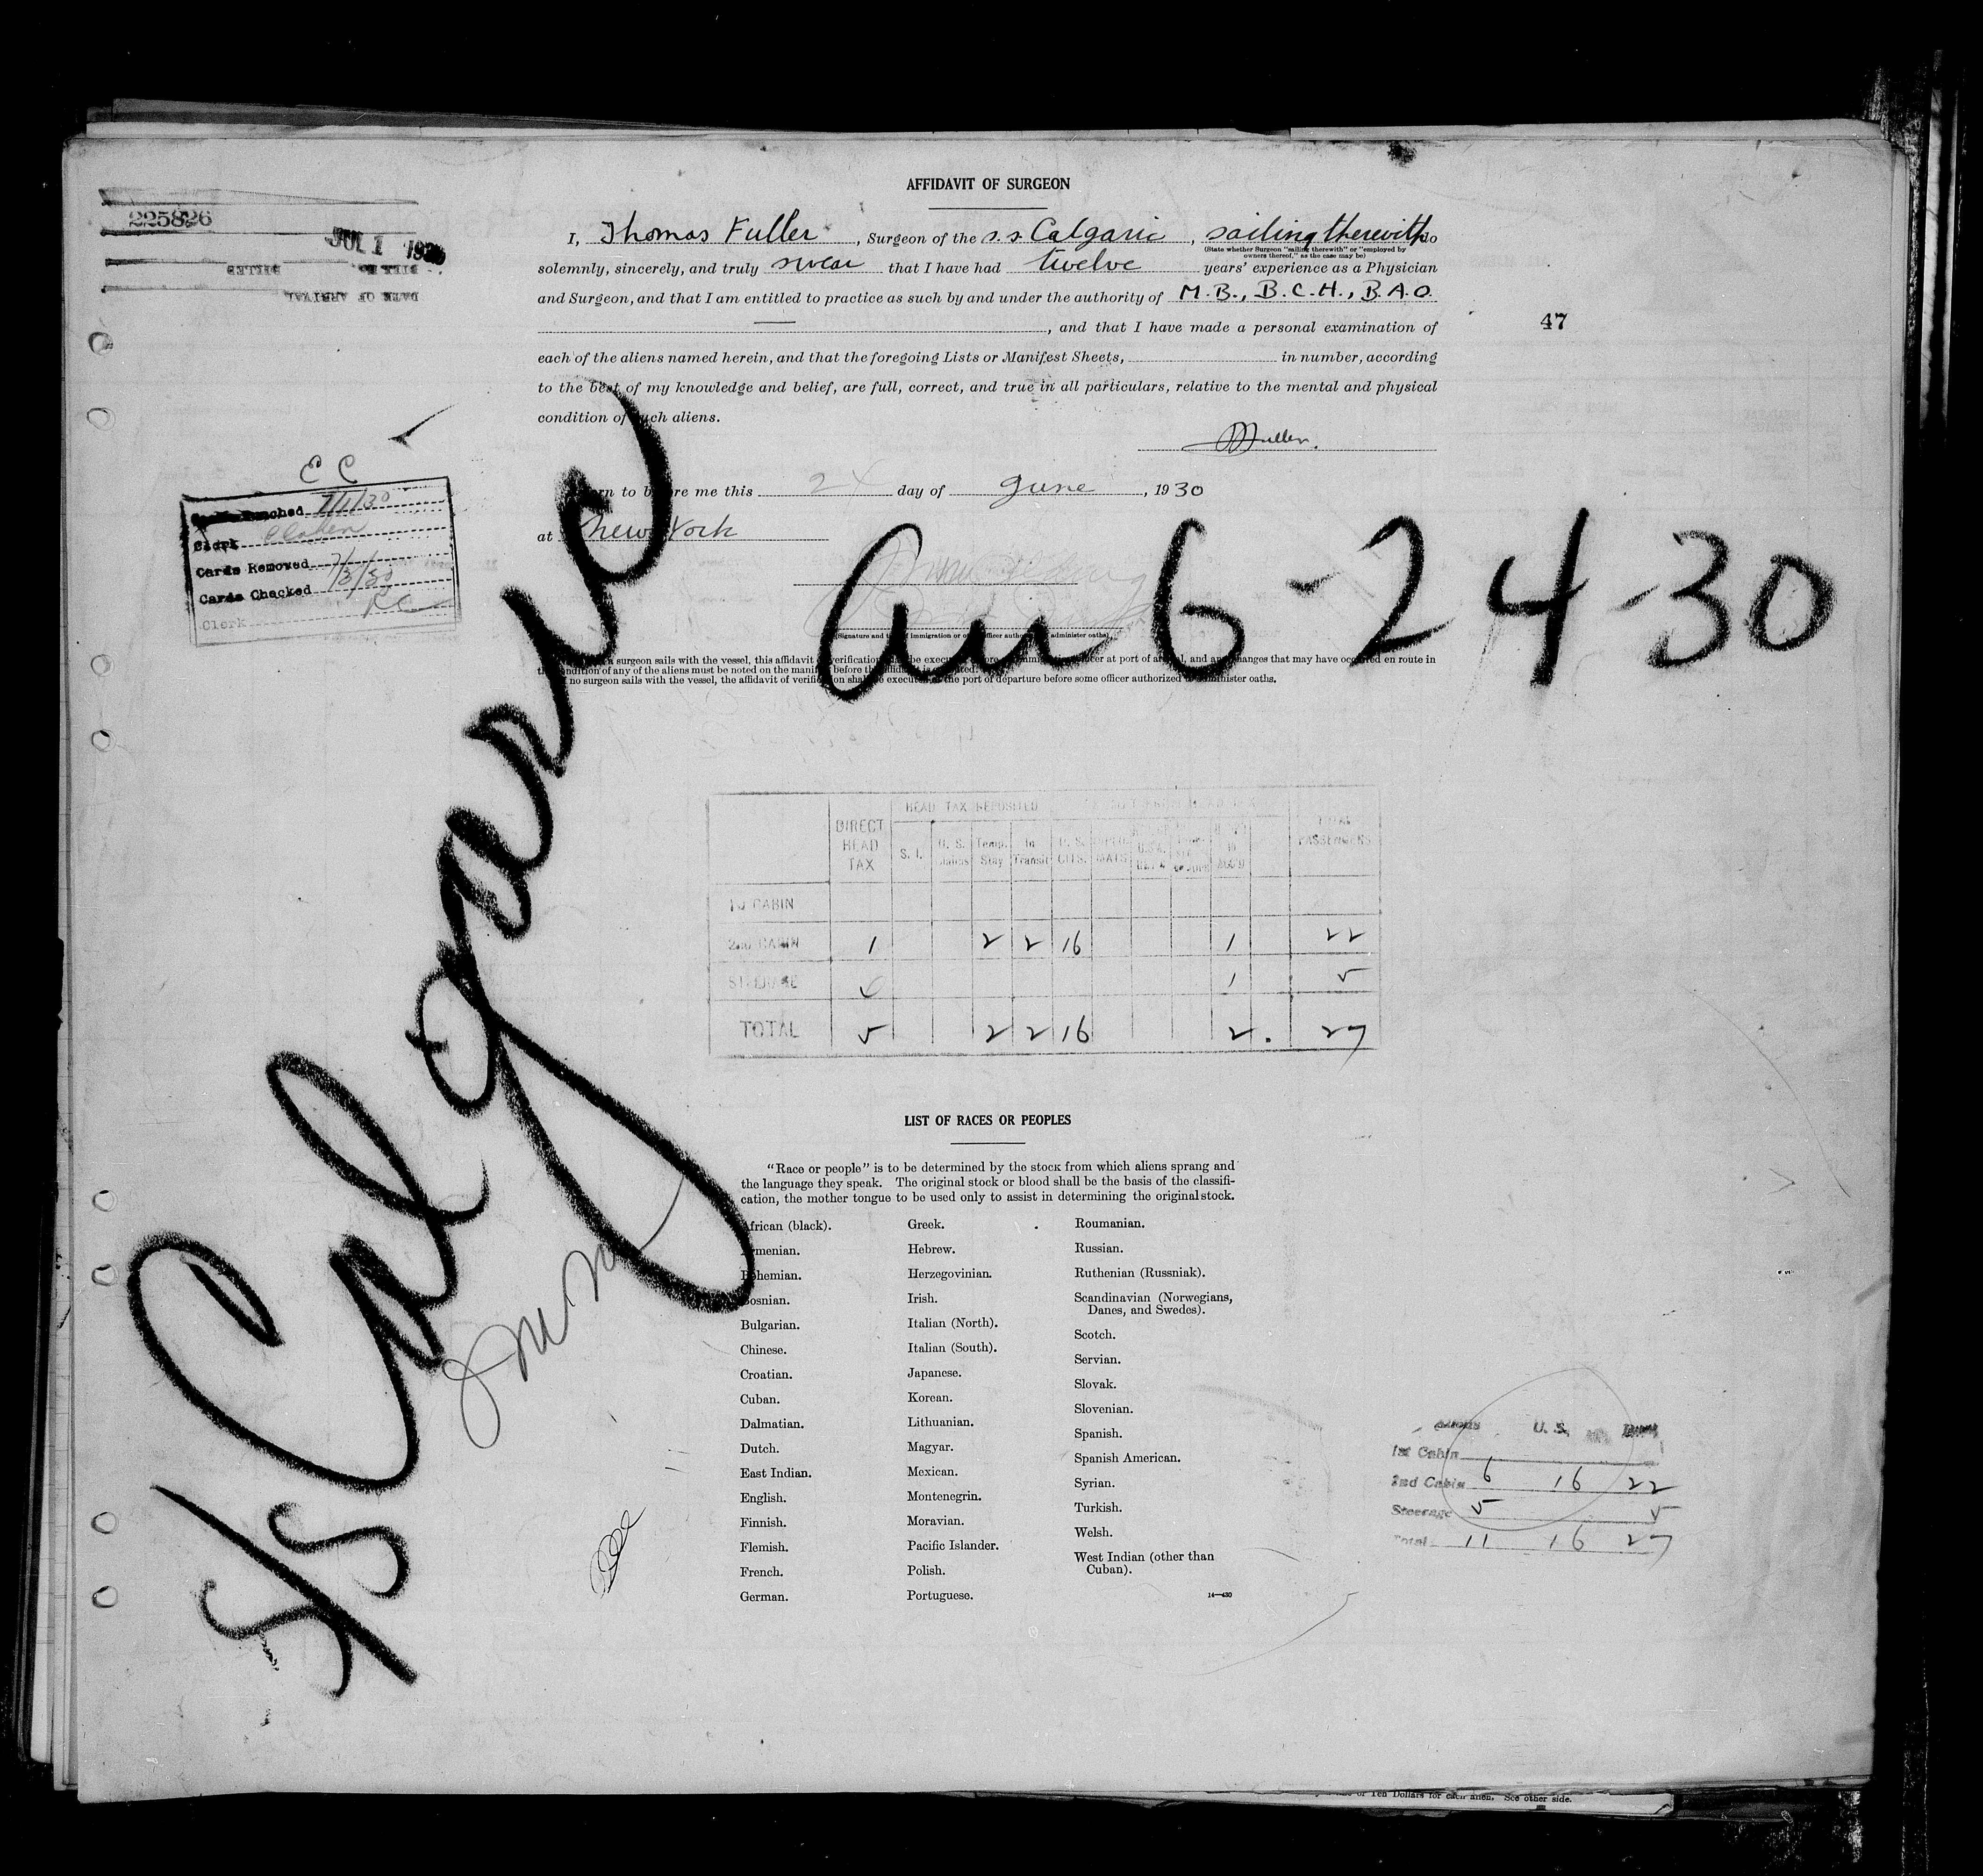 AFFIDAVIT OF SURGEON
225826
JUL 1 1930
BILL No. BILLED
DATE OF ARRIVAL
I, Thomas Fuller, Surgeon of the s.s. Calgaric, sailing therewith do
(State whether Surgeon "sailing therewith" or "employed by
owners thereof," as the case may be)
solemnly, sincerely, and truly swear that I have had twelve years' experience as a Physician
and Surgeon, and that I am entitled to practice as such by and under the authority of M.B., B.C.H., B.A.O.
, and that I have made a personal examination of
47
each of the aliens named herein, and that the foregoing Lists or Manifest Sheets, in number, according
to the best of my knowledge and belief, are full, correct, and true in all particulars, relative to the mental and physical
condition of such aliens.
Fuller.
E C
Punched 7/1/30
Clerk
Cards Removed 7/3/30
Cards Checked
Clerk RC
to before me this 24 day of June, 1930
at New York
(Signature and title of immigration or other officer authorized to administer oaths)
Arr 6-24-30
surgeon sails with the vessel, this affidavit verification be executed before immigration officer at port of arrival, and any changes that may have occurred en route in
the condition of any of the aliens must be noted on the manifest before the affidavit is executed.
no surgeon sails with the vessel, the affidavit of verification shall be executed at the port of departure before some officer authorized to administer oaths.
S/S Calgaric
HEAD TAX DEPOSITED
DIRECT HEAD TAX S. I. U. S. Temp. Stay In Transit U. S. CITS. TOTAL PASSENGERS
1st CABIN
2nd CABIN 1 2 2 16 1 22
STEERAGE 1 5
TOTAL 5 2 2 16 2. 27
LIST OF RACES OR PEOPLES
"Race or people" is to be determined by the stock from which aliens sprang and
the language they speak. The original stock or blood shall be the basis of the classifi-
cation, the mother tongue to be used only to assist in determining the original stock.
African (black).
Armenian.
Bohemian.
Bosnian.
Bulgarian.
Chinese.
Croatian.
Cuban.
Dalmatian.
Dutch.
East Indian.
English.
Finnish.
Flemish.
French.
German.
Greek.
Hebrew.
Herzegovinian.
Irish.
Italian (North).
Italian (South).
Japanese.
Korean.
Lithuanian.
Magyar.
Mexican.
Montenegrin.
Moravian.
Pacific Islander.
Polish.
Portuguese.
Roumanian.
Russian.
Ruthenian (Russniak).
Scandinavian (Norwegians,
Danes, and Swedes).
Scotch.
Servian.
Slovak.
Slovenian.
Spanish.
Spanish American.
Syrian.
Turkish.
Welsh.
West Indian (other than
Cuban).
14—430
Aliens U. S. Total
1st Cabin
2nd Cabin 6 16 22
Steerage 5 5
Total 11 16 27
of Ten Dollars for each alien. See other side.